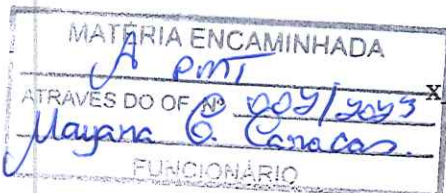 MATÉRIA ENCAMINHADA
A PMT
x
ATRAVÉS DO OF. Nº 007/2023
Mayana C. Caracas.
FUNCIONÁRIO